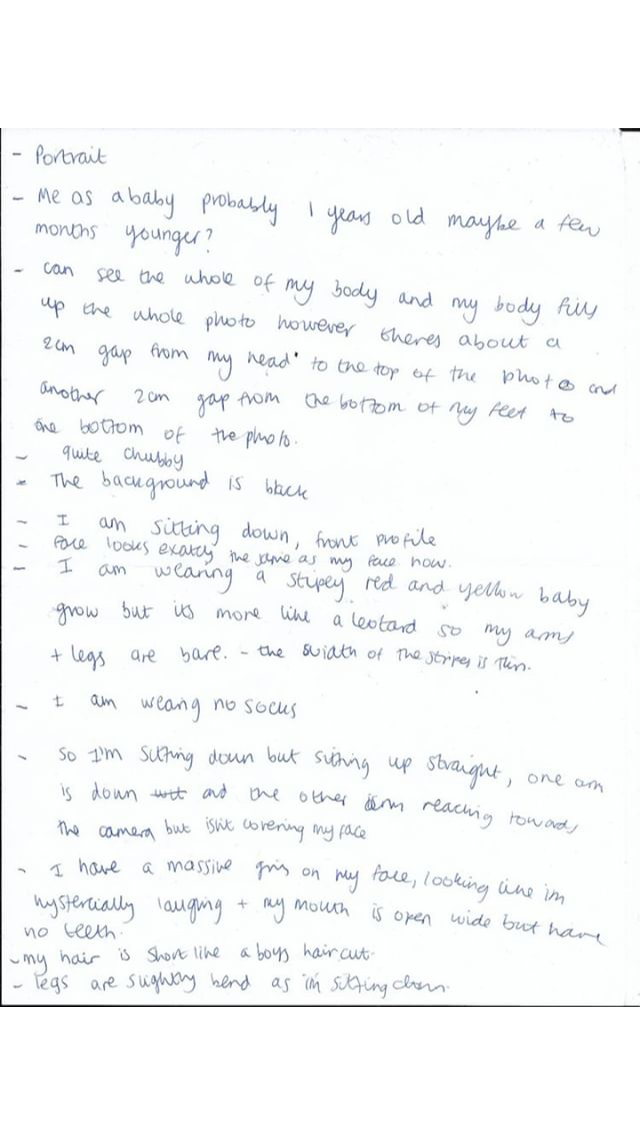 - Portrait
- Me as a baby probably 1 years old maybe a few
months younger?
- can see the whole of my body and my body fills
up the whole photo however theres about a
2cm gap from my head to the top of the photo and
another 2cm gap from the bottom of my feet to
the bottom of the photo.
- quite chubby
- The background is black
- I am sitting down, front profile
- Face looks exatcy the same as my face now.
- I am wearing a stipey red and yellow baby
grow but its more like a leotard so my arms
+ legs are bare. - the width of the stripes is thin.
- I am wearing no socks
- So I'm sitting down but sitting up straight, one arm
is down and the other arm reaching towards
the camera but isnt covering my face
- I have a massive grin on my face, looking like im
hystercially lauging + my mouth is open wide but have
no teeth.
- my hair is short like a boys haircut.
- legs are slightly bend as i'm sitting down.